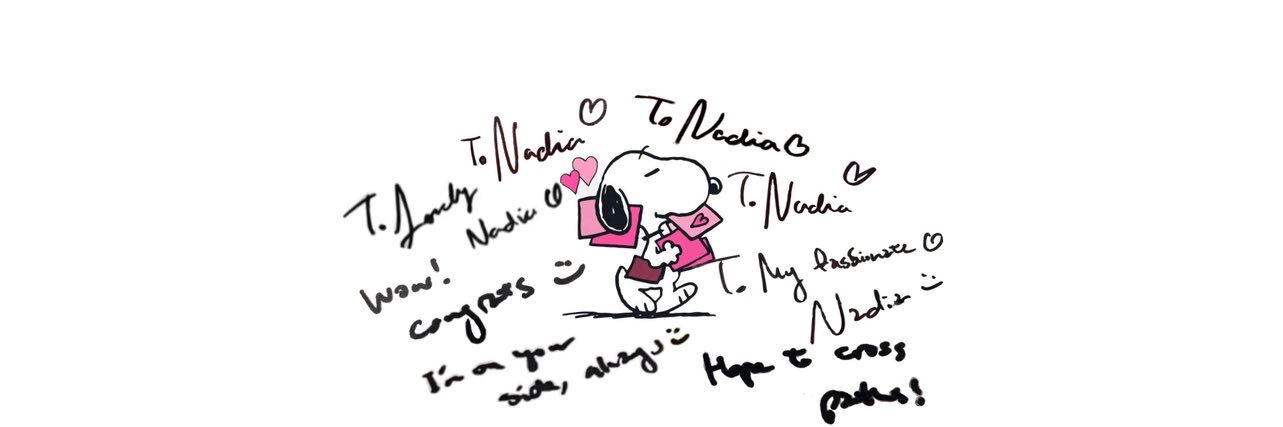 To Nadia
To Nadia
To Lovely
Nadia
To Nadia
wow!
congrats
To My Passionate
Nadia
I'm on your
side, always
Hope to cross
paths!